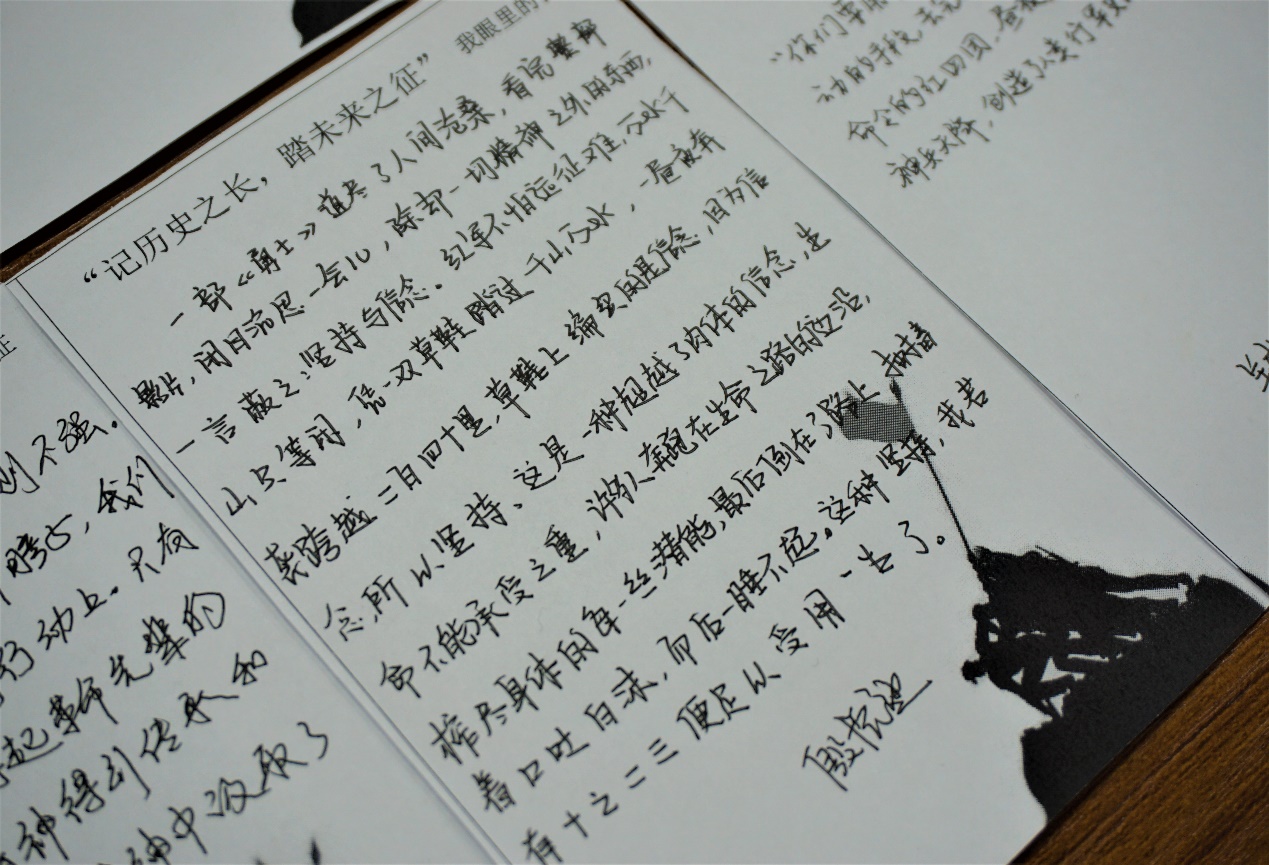 “记历史之长，踏未来之征”
我眼里的
一部《勇士》道尽了人间沧桑，看完整部
影片，闭目沉思一会儿，除却一切精神之外的东西，
一言蔽之：坚持与信念。红军不怕远征难，万水千
山只等闲，凭一双草鞋踏过千山万水，一昼夜奔
袭跨越二百四十里，草鞋上编织的是信念，因为信
念，所以坚持、这是一种超越了肉体的信念，生
命不能承受之重，许多人奔跑在生命之路的边沿，
榨尽身体的每一丝潜能，最后倒在了路上 抽搐
着口吐白沫，而后一睡不起。这种坚持，我若
有十之二三便足以受用一生了。
殷悦
别不强。
腾占，我们
行动上。只有
起革命先辈的
神得到传承和
神中汲取了
“你们要用
动的手段，去完
命令的红四团，昼夜
神兵天降，创造了人类行军